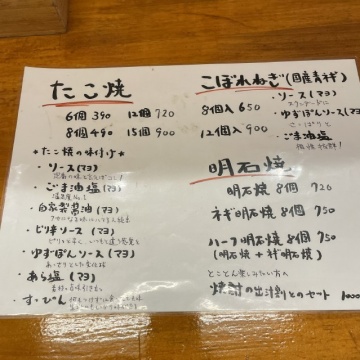 たこ焼
6個 390 12個 720
8個 490 15個 900
*たこ焼の味付け*
・ソース(マヨ)
・ごま油塩(マヨ)
・自家製醤油(マヨ)
・ピリ辛ソース(マヨ)
・ゆずぽんソース(マヨ)
・あら塩(マヨ)
・すっぴん
こぼれねぎ(国産青ネギ)
8個入 650
12個入 900
・ソース(マヨ)
・ゆずぽんソース(マヨ)
さっぱりと
・ごま油塩
明石焼
明石焼 8個 720
ネギ明石焼 8個 750
ハーフ明石焼 8個 750
(明石焼+ネギ明石焼)
とことん楽しみたい方へ
焼酎の出汁割とのセット 1000